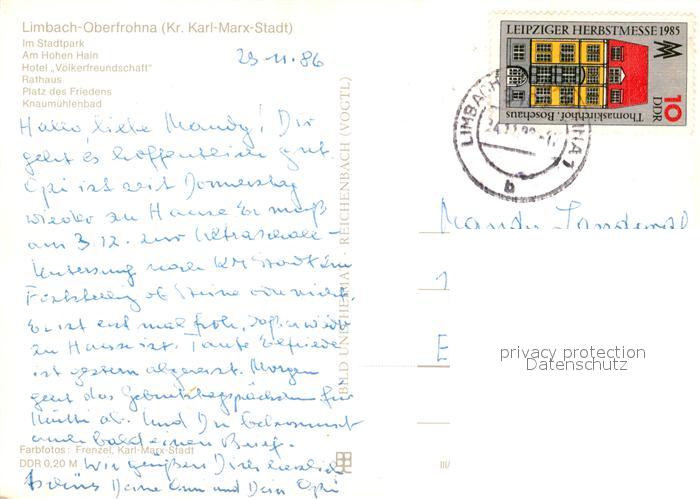 Limbach-Oberfrohna (Kr. Karl-Marx-Stadt)
Im Stadtpark
Am Hohen Hain
Hotel „Völkerfreundschaft“
Rathaus
Platz des Friedens
Knaumühlenbad
23.11.86
Hallo, liebe Mandy! Dir
geht es hoffentlich gut.
Opi ist seit Donnerstag
wieder zu Hause Er muß
am 3.12. zur Ultraschall-
Untersung nach KM Stadt zur
Feststellung ob Steine oder nicht.
Er ist erst mal froh, daß er wieder
zu Hause ist. Tante Elfriede
ist gestern abgereist. Morgen
geht das Geburtstagspäckchen für
Mutti ab. Und Du bekommst
auch bald einen Brief.
Wir grüßen Dich herzlich
Deine Omi und Dein Opi
Farbfotos: Frenzel, Karl-Marx-Stadt
DDR 0,20 M
BILD UND HEIMAT · REICHENBACH (VOGTL)
III/
LEIPZIGER HERBSTMESSE 1985
10
DDR
Thomaskirchhof, Bosehaus
LIMBACH-OBERFROHNA 1
b
Mandy
privacy protection
Datenschutz